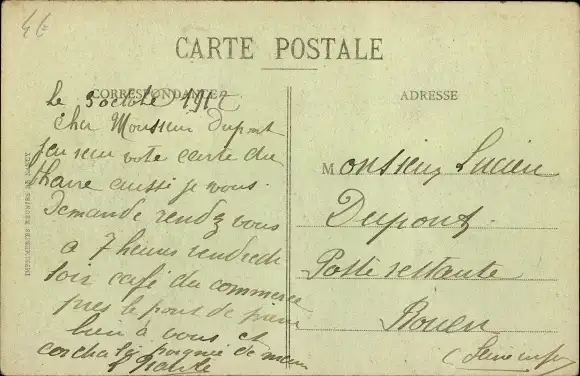 4€
CARTE POSTALE
CORRESPONDANCE
ADRESSE
le 3 octobre 1917
cher Monsieur Dupont
jeu recu vote carte du
Havre aussi je vous
Demande rendez vous
a 7 heures vendredi
soir café du commerce
pres le pont de pierre
bien à vous et
cordiale poignée de main
Monsieur Lucien
Dupont
Poste restante
Rouen
(Seine inf)
IMPRIMERIES REUNIES DE NANCY